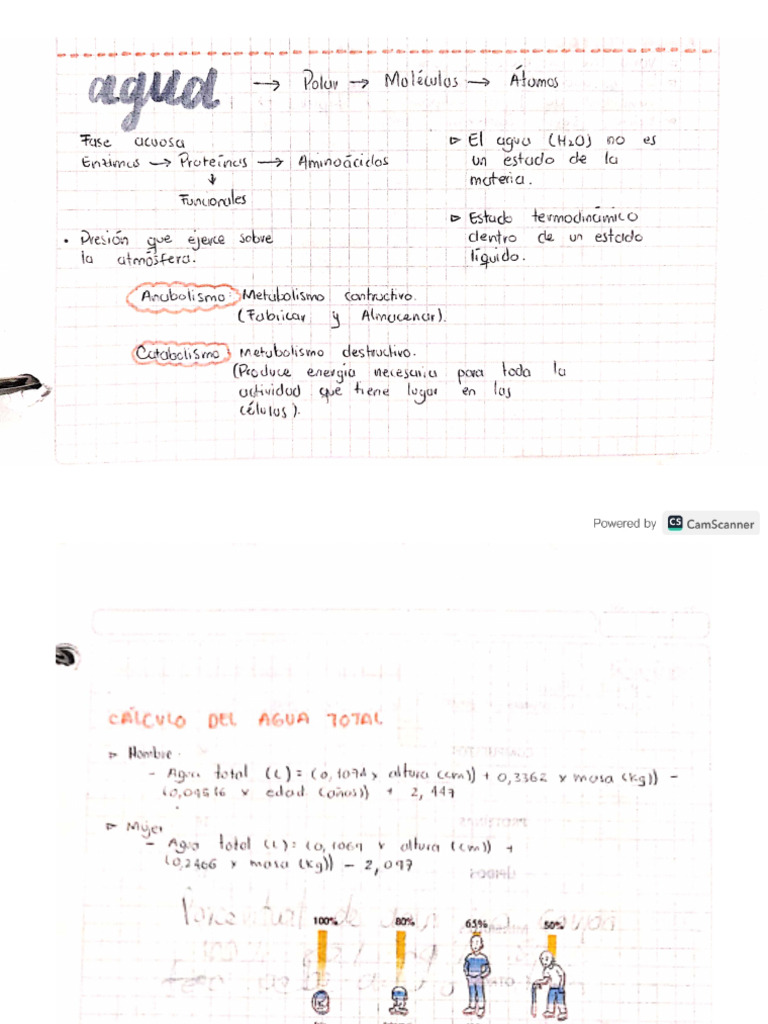 agua → Polar → Moléculas → Átomos
Fase acuosa
Enzimas → Proteínas → Aminoácidos
↓
Funcionales
• Presión que ejerce sobre
la atmósfera.
▷ El agua (H2O) no es
un estado de la
materia.
▷ Estado termodinámico
dentro de un estado
líquido.
Anabolismo: Metabolismo contructivo.
(Fabricar y Almacenar).
Catabolismo: Metabolismo destructivo.
(Produce energía necesaria para toda la
actividad que tiene lugar en las
células).
Powered by CS CamScanner
CÁLCULO DEL AGUA TOTAL
▷ Hombre
- Agua total (L) = (0,1074 x altura (cm)) + 0,3362 x masa (kg)) -
(0,09516 x edad (años)) + 2,447
▷ Mujer
- Agua total (L): (0,1069 x altura (cm)) +
(0,2466 x masa (kg)) - 2,097
100% 80% 65% 50%